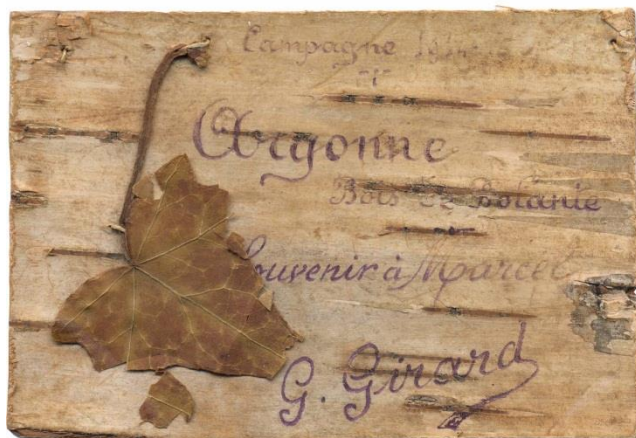 Campagne
Argonne
Bois de Bolante
Souvenir à Marcel
G. Girard